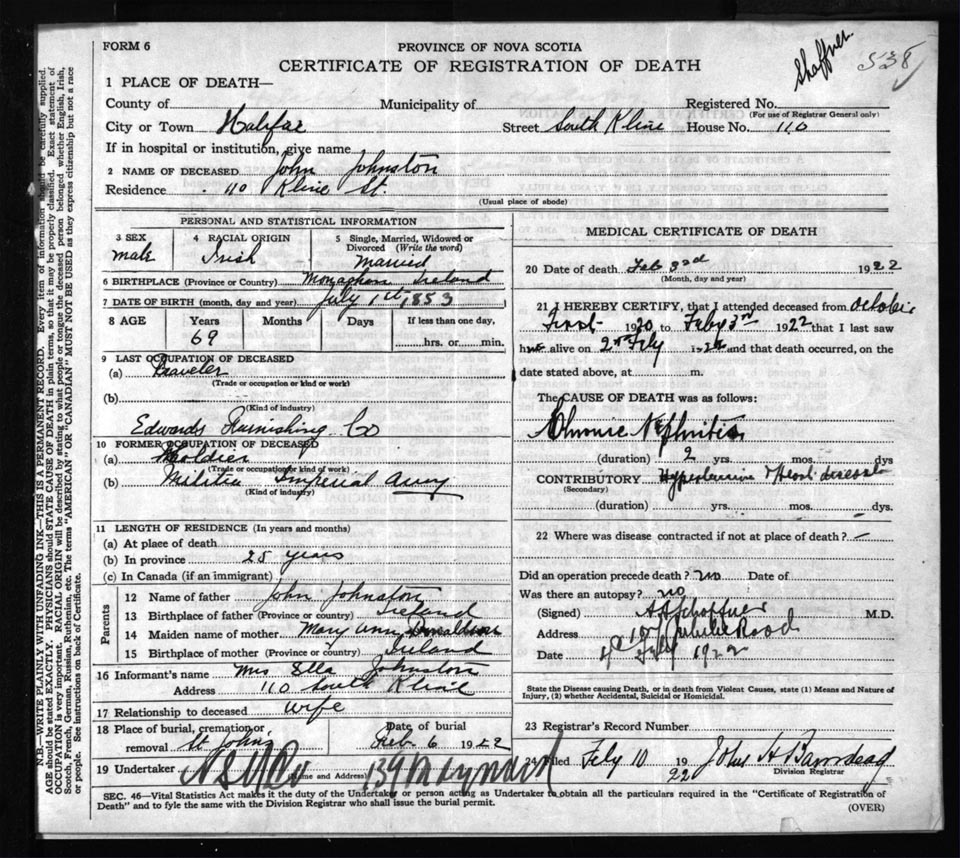 FORM 6
PROVINCE OF NOVA SCOTIA
CERTIFICATE OF REGISTRATION OF DEATH
Shaffner 538
1 PLACE OF DEATH—
County of Municipality of Registered No.
(For use of Registrar General only)
City or Town Halifax Street South Kline House No. 110
If in hospital or institution, give name
2 NAME OF DECEASED John Johnston
Residence 110 Kline St.
(Usual place of abode)
PERSONAL AND STATISTICAL INFORMATION
3 SEX 4 RACIAL ORIGIN 5 Single, Married, Widowed or Divorced (Write the word)
male Irish Married
6 BIRTHPLACE (Province or Country) Monaghan Ireland
7 DATE OF BIRTH (month, day and year) July 1st 1853
8 AGE Years Months Days If less than one day,
69 hrs. or min.
9 LAST OCCUPATION OF DECEASED
(a) Traveler
(Trade or occupation or kind or work)
(b)
(Kind of industry)
Edwards Furnishing Co
10 FORMER OCCUPATION OF DECEASED
(a) Soldier
(Trade or occupation or kind of work)
(b) Militia Imperial Army
(Kind of industry)
11 LENGTH OF RESIDENCE (In years and months)
(a) At place of death
(b) In province 25 years
(c) In Canada (if an immigrant)
Parents
12 Name of father John Johnston
13 Birthplace of father (Province or country) Ireland
14 Maiden name of mother Mary Ann Donaldson
15 Birthplace of mother (Province or country) Ireland
16 Informant's name Mrs Ella Johnston
Address 110 South Kline
17 Relationship to deceased wife
18 Place of burial, cremation or removal St John's Date of burial Feb 6 1922
19 Undertaker (Name and Address) 139 Maynard
MEDICAL CERTIFICATE OF DEATH
20 Date of death Feb 3rd 1922
(Month, day and year)
21 I HEREBY CERTIFY, that I attended deceased from October
First 1920 to Feby 3rd 1922 that I last saw
him alive on 2nd Feby 1922 and that death occurred, on the
date stated above, at m.
The CAUSE OF DEATH was as follows:
Chronic Nephritis
(duration) 2 yrs. mos. dys
CONTRIBUTORY Hypertension & Heart disease
(Secondary)
(duration) yrs. mos. dys.
22 Where was disease contracted if not at place of death? —
Did an operation precede death? no Date of
Was there an autopsy? no
(Signed) Schaffner M.D.
Address Jubilee Road
Date Feby 1922
State the Disease causing Death, or in death from Violent Causes, state (1) Means and Nature of
Injury, (2) whether Accidental, Suicidal or Homicidal.
23 Registrar's Record Number
24 Filed Feby 10 1922 John A
Division Registrar
SEC. 46—Vital Statistics Act makes it the duty of the Undertaker or person acting as Undertaker to obtain all the particulars required in the "Certificate of Registration of
Death" and to fyle the same with the Division Registrar who shall issue the burial permit.
(OVER)
N.B.—WRITE PLAINLY WITH UNFADING INK—THIS IS A PERMANENT RECORD. Every item of information should be carefully supplied.
AGE should be stated EXACTLY. PHYSICIANS should STATE CAUSE OF DEATH in plain terms, so that it may be properly classified. Exact statement of
OCCUPATION is very important. RACIAL ORIGIN will be described by stating to what people or tongue the deceased person belonged whether English, Irish,
Scotch, French, German, Russian, Ruthenian, etc. The terms "AMERICAN" OR "CANADIAN" MUST NOT BE USED as they express citizenship but not a race
or people. See instructions on back of Certificate.